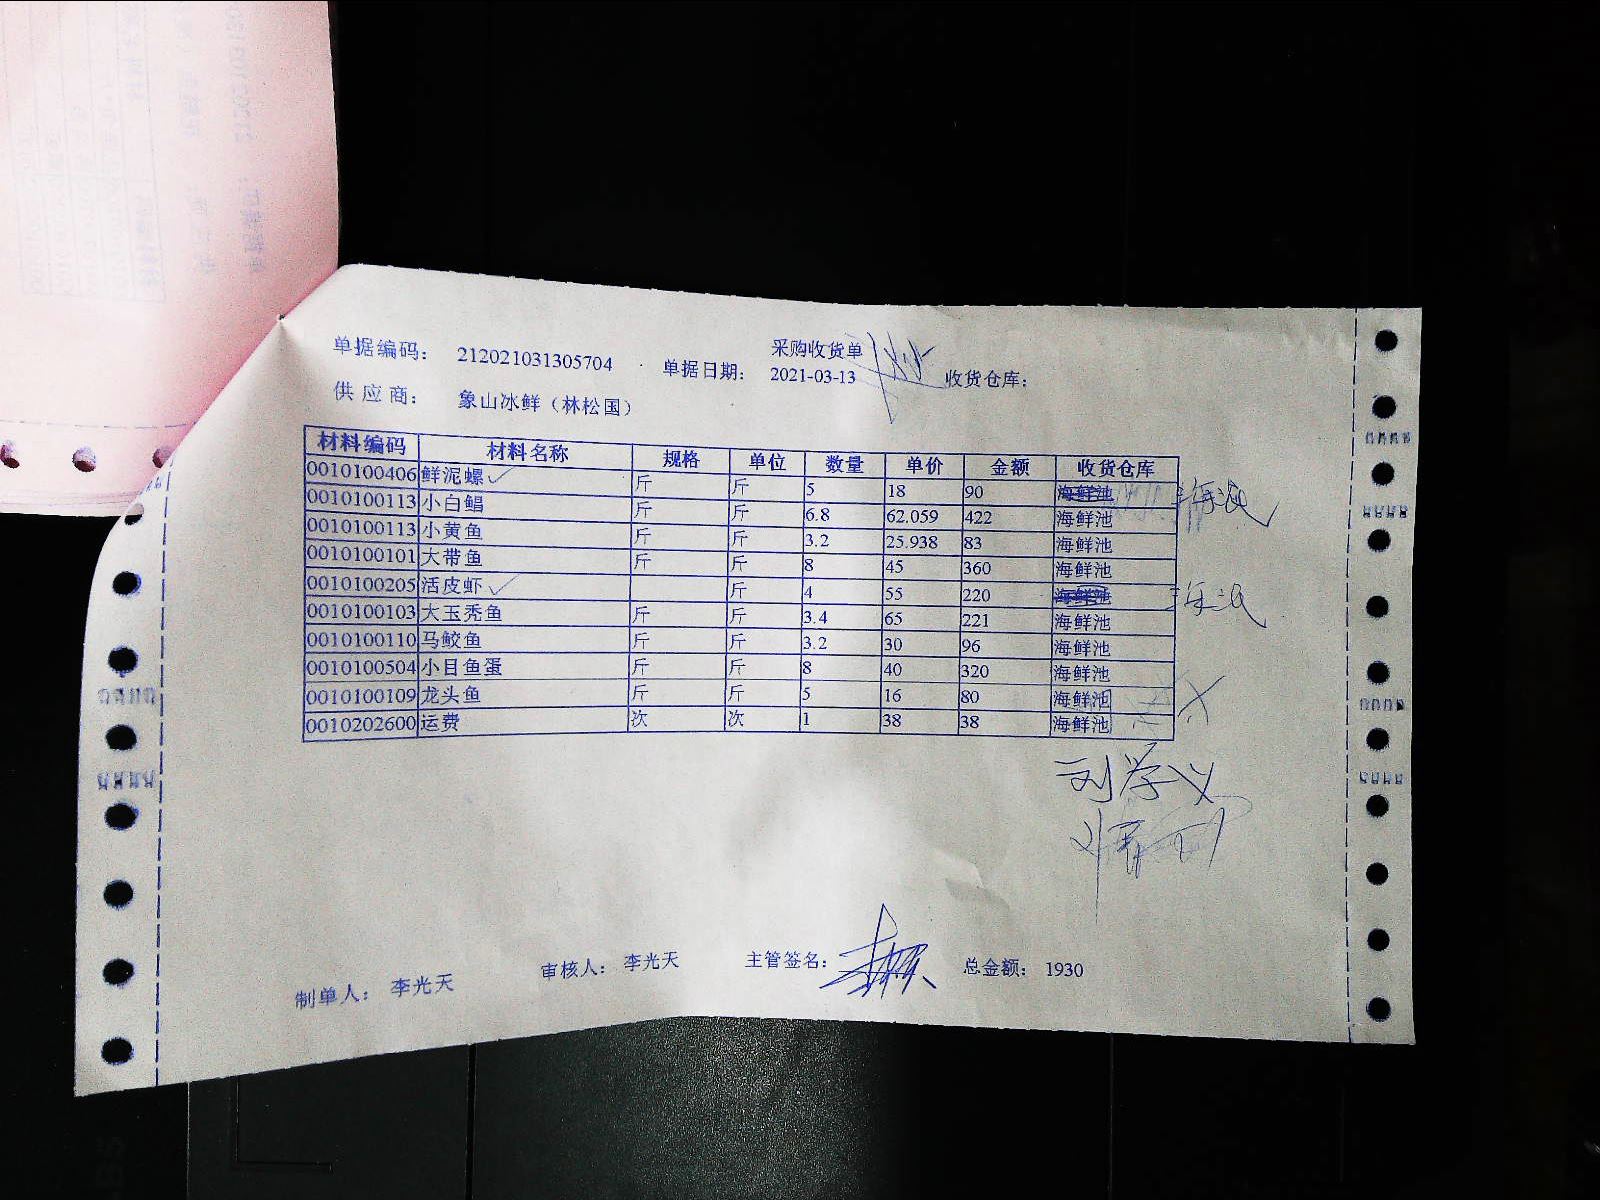 采购收货单
单据编码： 212021031305704 单据日期： 2021-03-13 收货仓库：
供应商： 象山冰鲜（林松国）
材料编码 材料名称 规格 单位 数量 单价 金额 收货仓库
0010100406 鲜泥螺 斤 斤 5 18 90 海鲜池
0010100113 小白鲳 斤 斤 6.8 62.059 422 海鲜池
0010100113 小黄鱼 斤 斤 3.2 25.938 83 海鲜池
0010100101 大带鱼 斤 斤 8 45 360 海鲜池
0010100205 活皮虾 斤 4 55 220 海鲜池
0010100103 大玉秃鱼 斤 斤 3.4 65 221 海鲜池
0010100110 马鲛鱼 斤 斤 3.2 30 96 海鲜池
0010100504 小目鱼蛋 斤 斤 8 40 320 海鲜池
0010100109 龙头鱼 斤 斤 5 16 80 海鲜池
0010202600 运费 次 次 1 38 38 海鲜池
刘学义
制单人： 李光天 审核人： 李光天 主管签名： 总金额： 1930